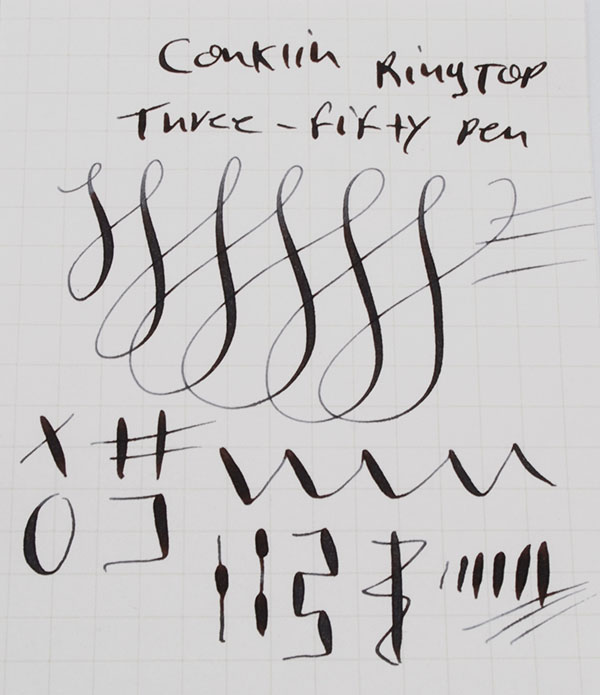 Conklin RingTOP
Three-fifty pen